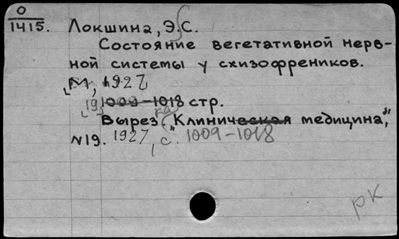 О
1415. Локшина, Э.С.
Состояние вегетативной нерв-
ной системы у схизофреников.
[М, 1927]
1009-1018 стр.
Вырез. "Клиническая медицина,"
N19. 1927, с. 1009-1018
рк